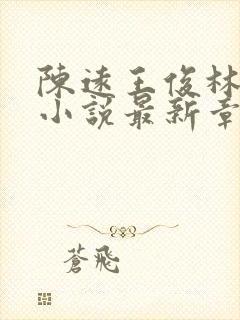 陳遠王俊林
小說最新章
蒼飛